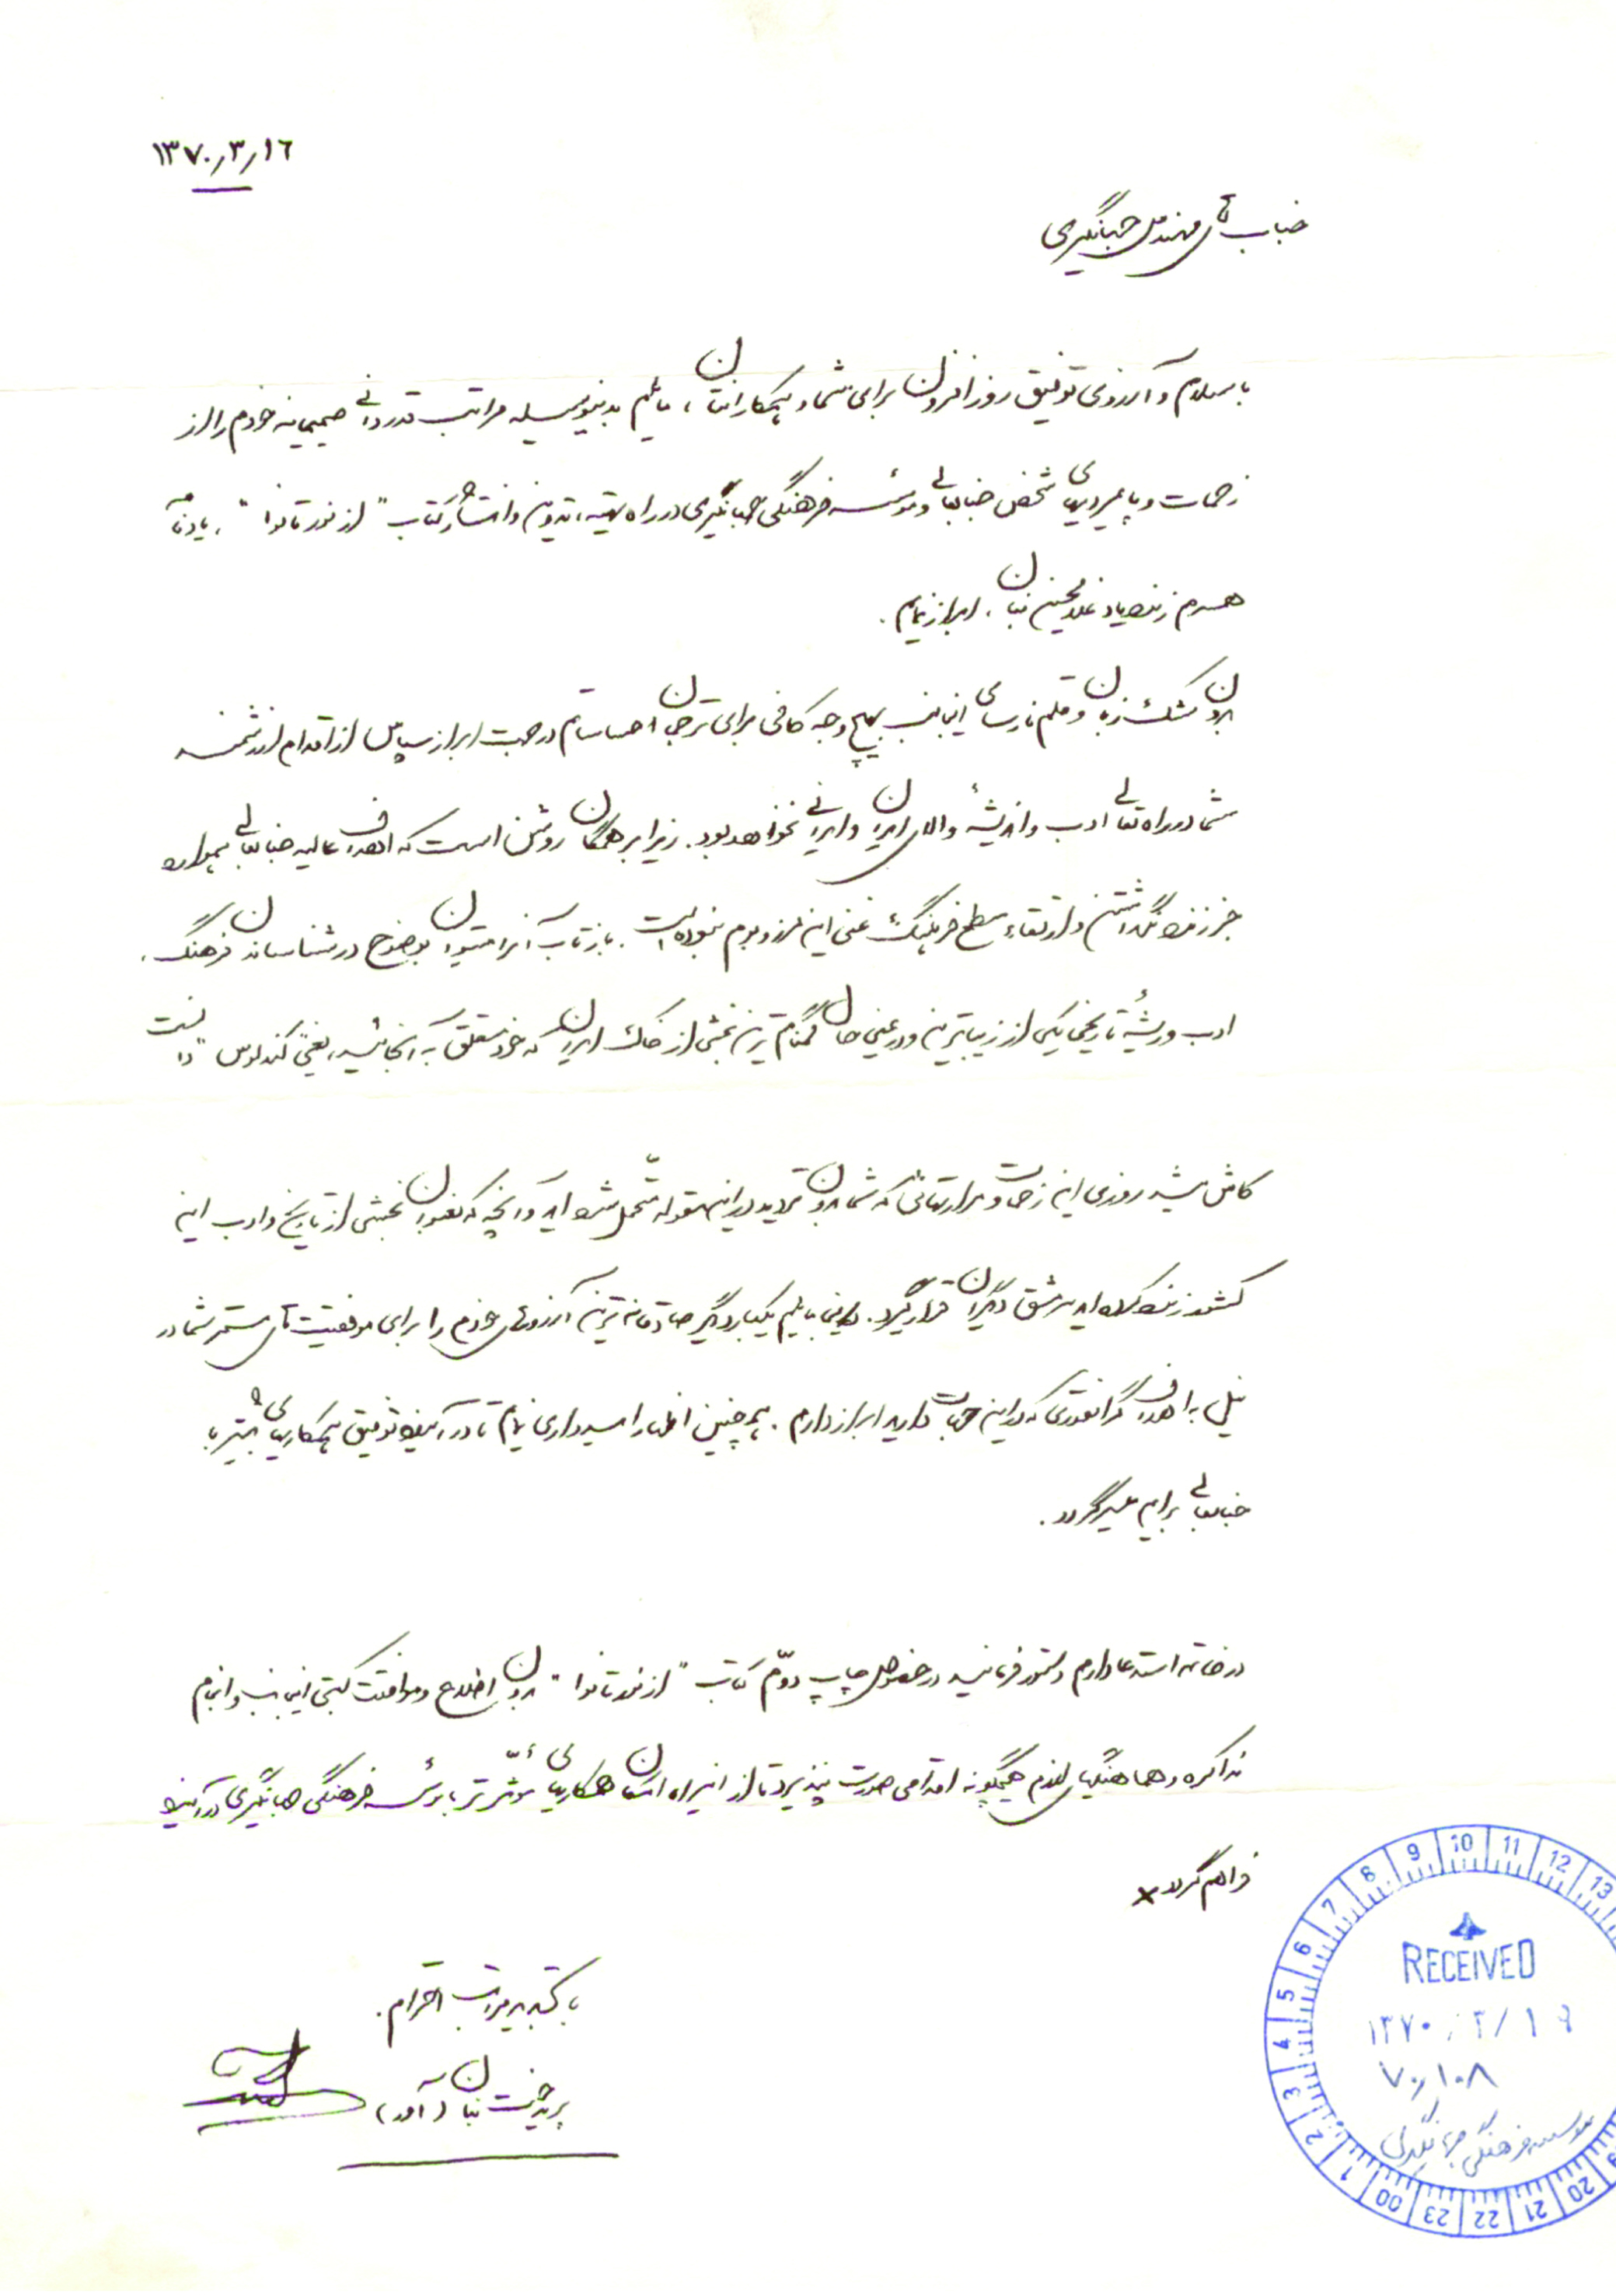 ۱۳۷۰/۳/۱۶
جناب آقای مهندس جهانگیری
با سلام و آرزوی توفیق روزافزون برای شما و همکارانتان، مایلم بدینوسیله مراتب قدردانی صمیمانه خودم را از
زحمات و پایمردیهای شخص جنابعالی و موسسه فرهنگی جهانگیری در راه تهیه، تدوین و انتشار کتاب "از نور تا نوا"، یادنامه
همسرم زنده‌یاد غلامحسین بنان، ابراز نمایم.
بدون شک زبان و قلم نارسای اینجانب بهیچوجه کافی برای ترجمان احساساتم در جهت ابراز سپاس از اقدام ارزشمند
شما در راه تعالی ادب و اندیشهٔ والای ایران و ایرانی نخواهد بود. زیرا بر همگان روشن است که اهداف عالیه جنابعالی همواره
جز زنده نگهداشتن و ارتقاء سطح فرهنگ غنی این مرز و بوم نبوده است. بازتاب آنرا میتوان بوضوح در شناساندن فرهنگ،
ادب و ریشهٔ تاریخی یکی از زیباترین و در عین حال گمنام ترین بخش از خاک ایران که خود متعلق به آنجائید، یعنی "کندلوس" دانست
کاش میشد روزی این زحمات و مرارتهائی که شما بدون تردید در این مقوله متحمل شده‌اید و آنچه که بعنوان بخشی از تاریخ و ادب این
کشور زنده کرده‌اید سرمشق دیگران قرار گیرد. بنابراین مایلم یکبار دیگر صادقانه ترین آرزوهای خودم را برای موفقیت‌های مستمر شما در
نیل به اهداف گرانقدری که در این جهت دارید ابراز دارم. همچنین اظهار امیدواری نمایم تا در آینده توفیق همکاریهای بیشتر با
جنابعالی برایم میسر گردد.
در خاتمه استدعا دارم دستور فرمائید در خصوص چاپ دوّم کتاب "از نور تا نوا" بدون اطلاع و موافقت کتبی اینجانب و انجام
مذاکره و هماهنگیهای لازم هیچگونه اقدامی صورت نپذیرد تا از اینراه امکان همکاریهای مؤثّرتر با موسسه فرهنگی جهانگیری در آینده
فراهم گردد ×
با تجدید مراتب احترام.
پریدخت بنان (آور)
9 10 11 12 13
8
7
6
5
4
3
2
1
00
23
22
21
20
RECEIVED
۱۳۷۰/۳/۱۹
۷۰/۱۰۸
موسسه فرهنگی جهانگیری